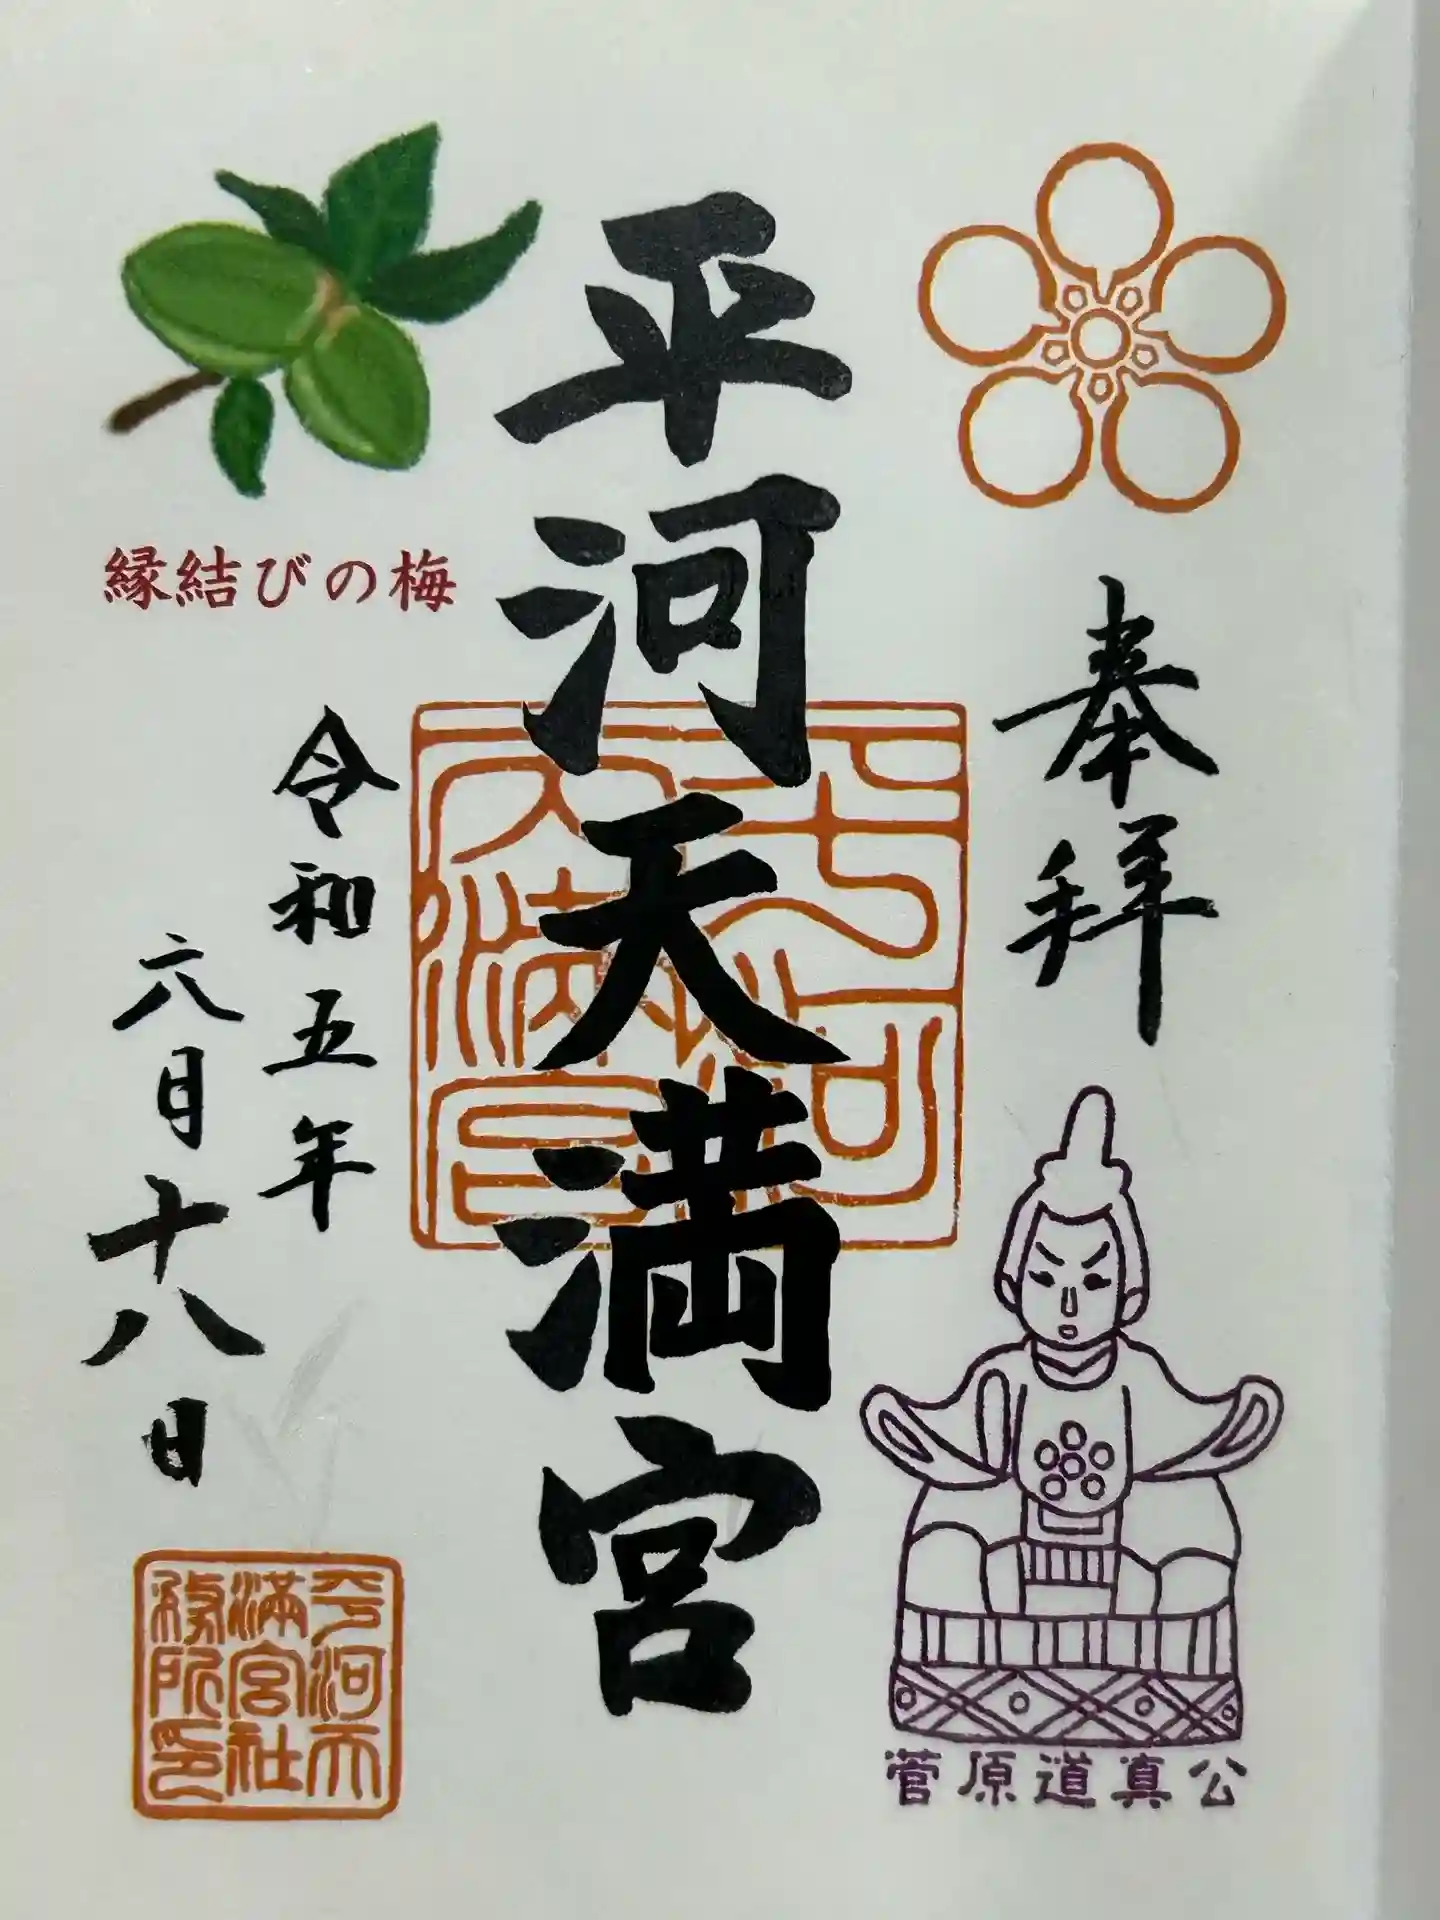 奉拝
菅原道真公
平河天満宮
平河
天満宮
縁結びの梅
令和五年
六月十八日
平河天
満宮社
務所印